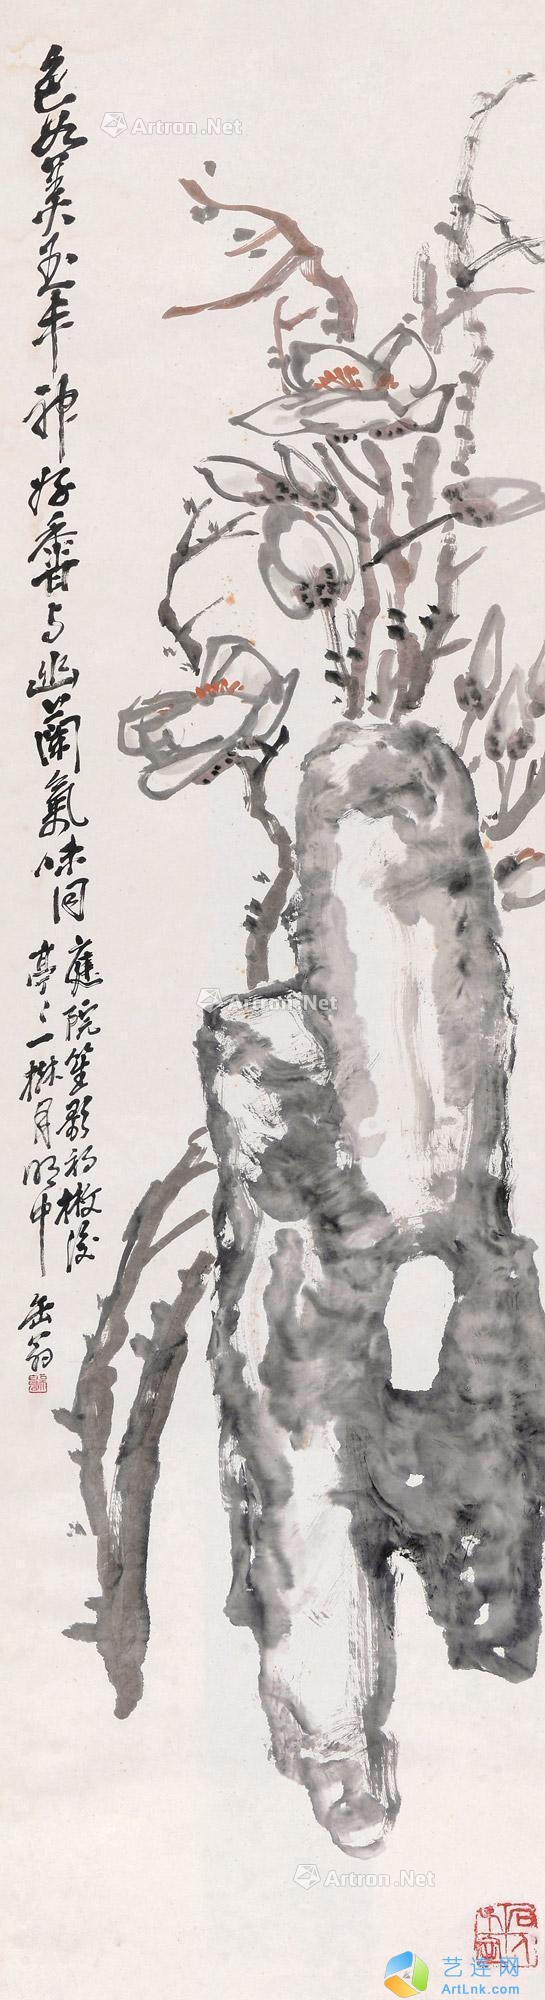 色如美玉丰神好香与幽兰气味同
庭院笙歌初散后
亭亭一树月明中
缶翁
Artron.Net
Artron.Net
Artron.Net
艺连网
ArtLnk.com